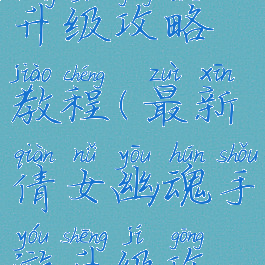 升级攻略
jiào chéng zuì xīn
教程(最新
qiàn nǚ yōu hún shǒu
倩女幽魂手
yóu shēng jí gōng